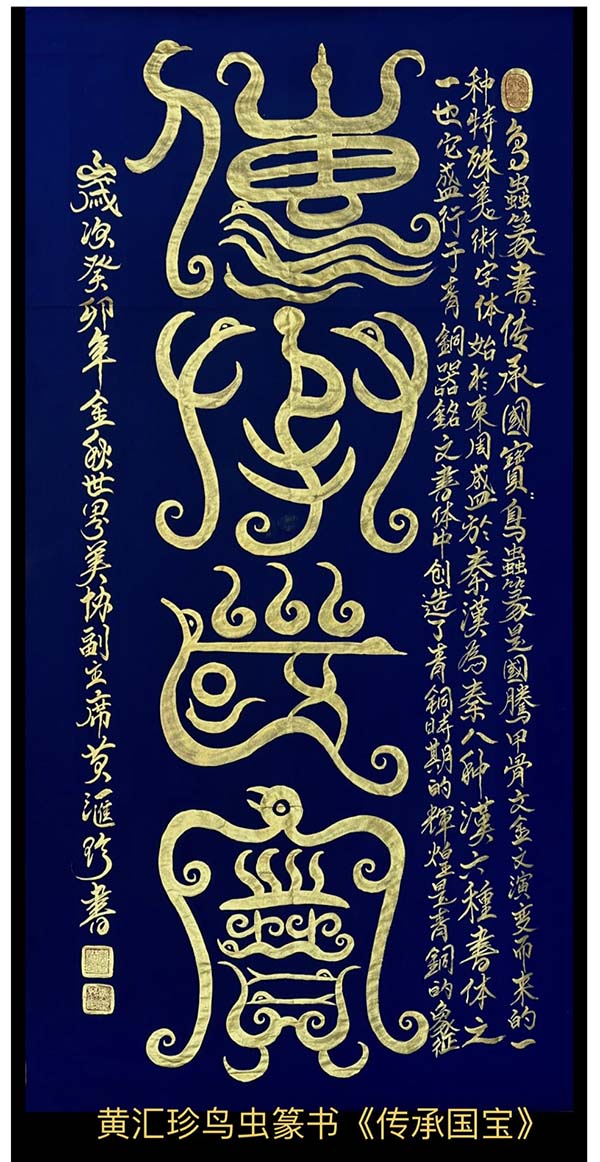 鸟蟲篆書:传承國寶:鳥蟲篆是國騰甲骨文金文演变而来的一
种特殊美術字体始於東周盛於秦漢為秦八种漢六種書体之
一也它盛行于青銅器銘文書体中创造了青銅時期的輝煌是青銅的象征
傳承國寶
歲次癸卯年金秋世界美协副主席黄滙珍書
黄汇珍鸟虫篆书《传承国宝》